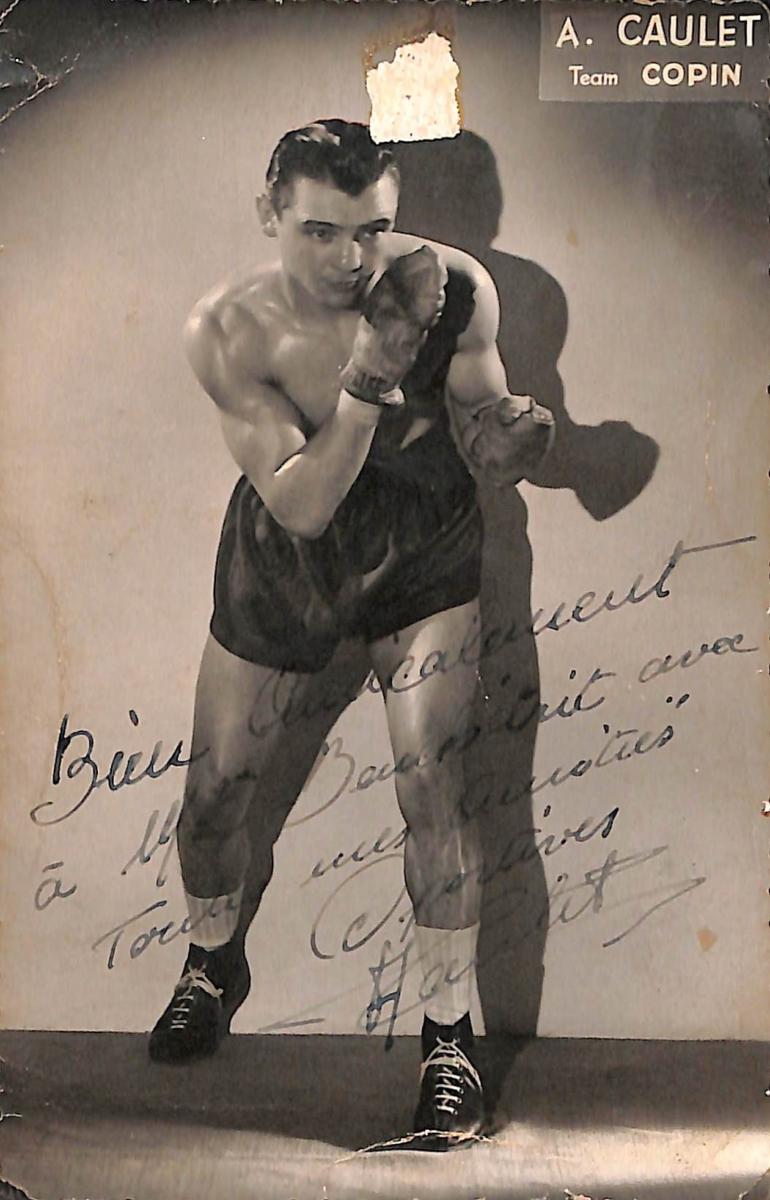 A. CAULET
Team COPIN
Bien Amicalement
à Mr avec
Toutes mes Amitiés
Sportives
Caulet